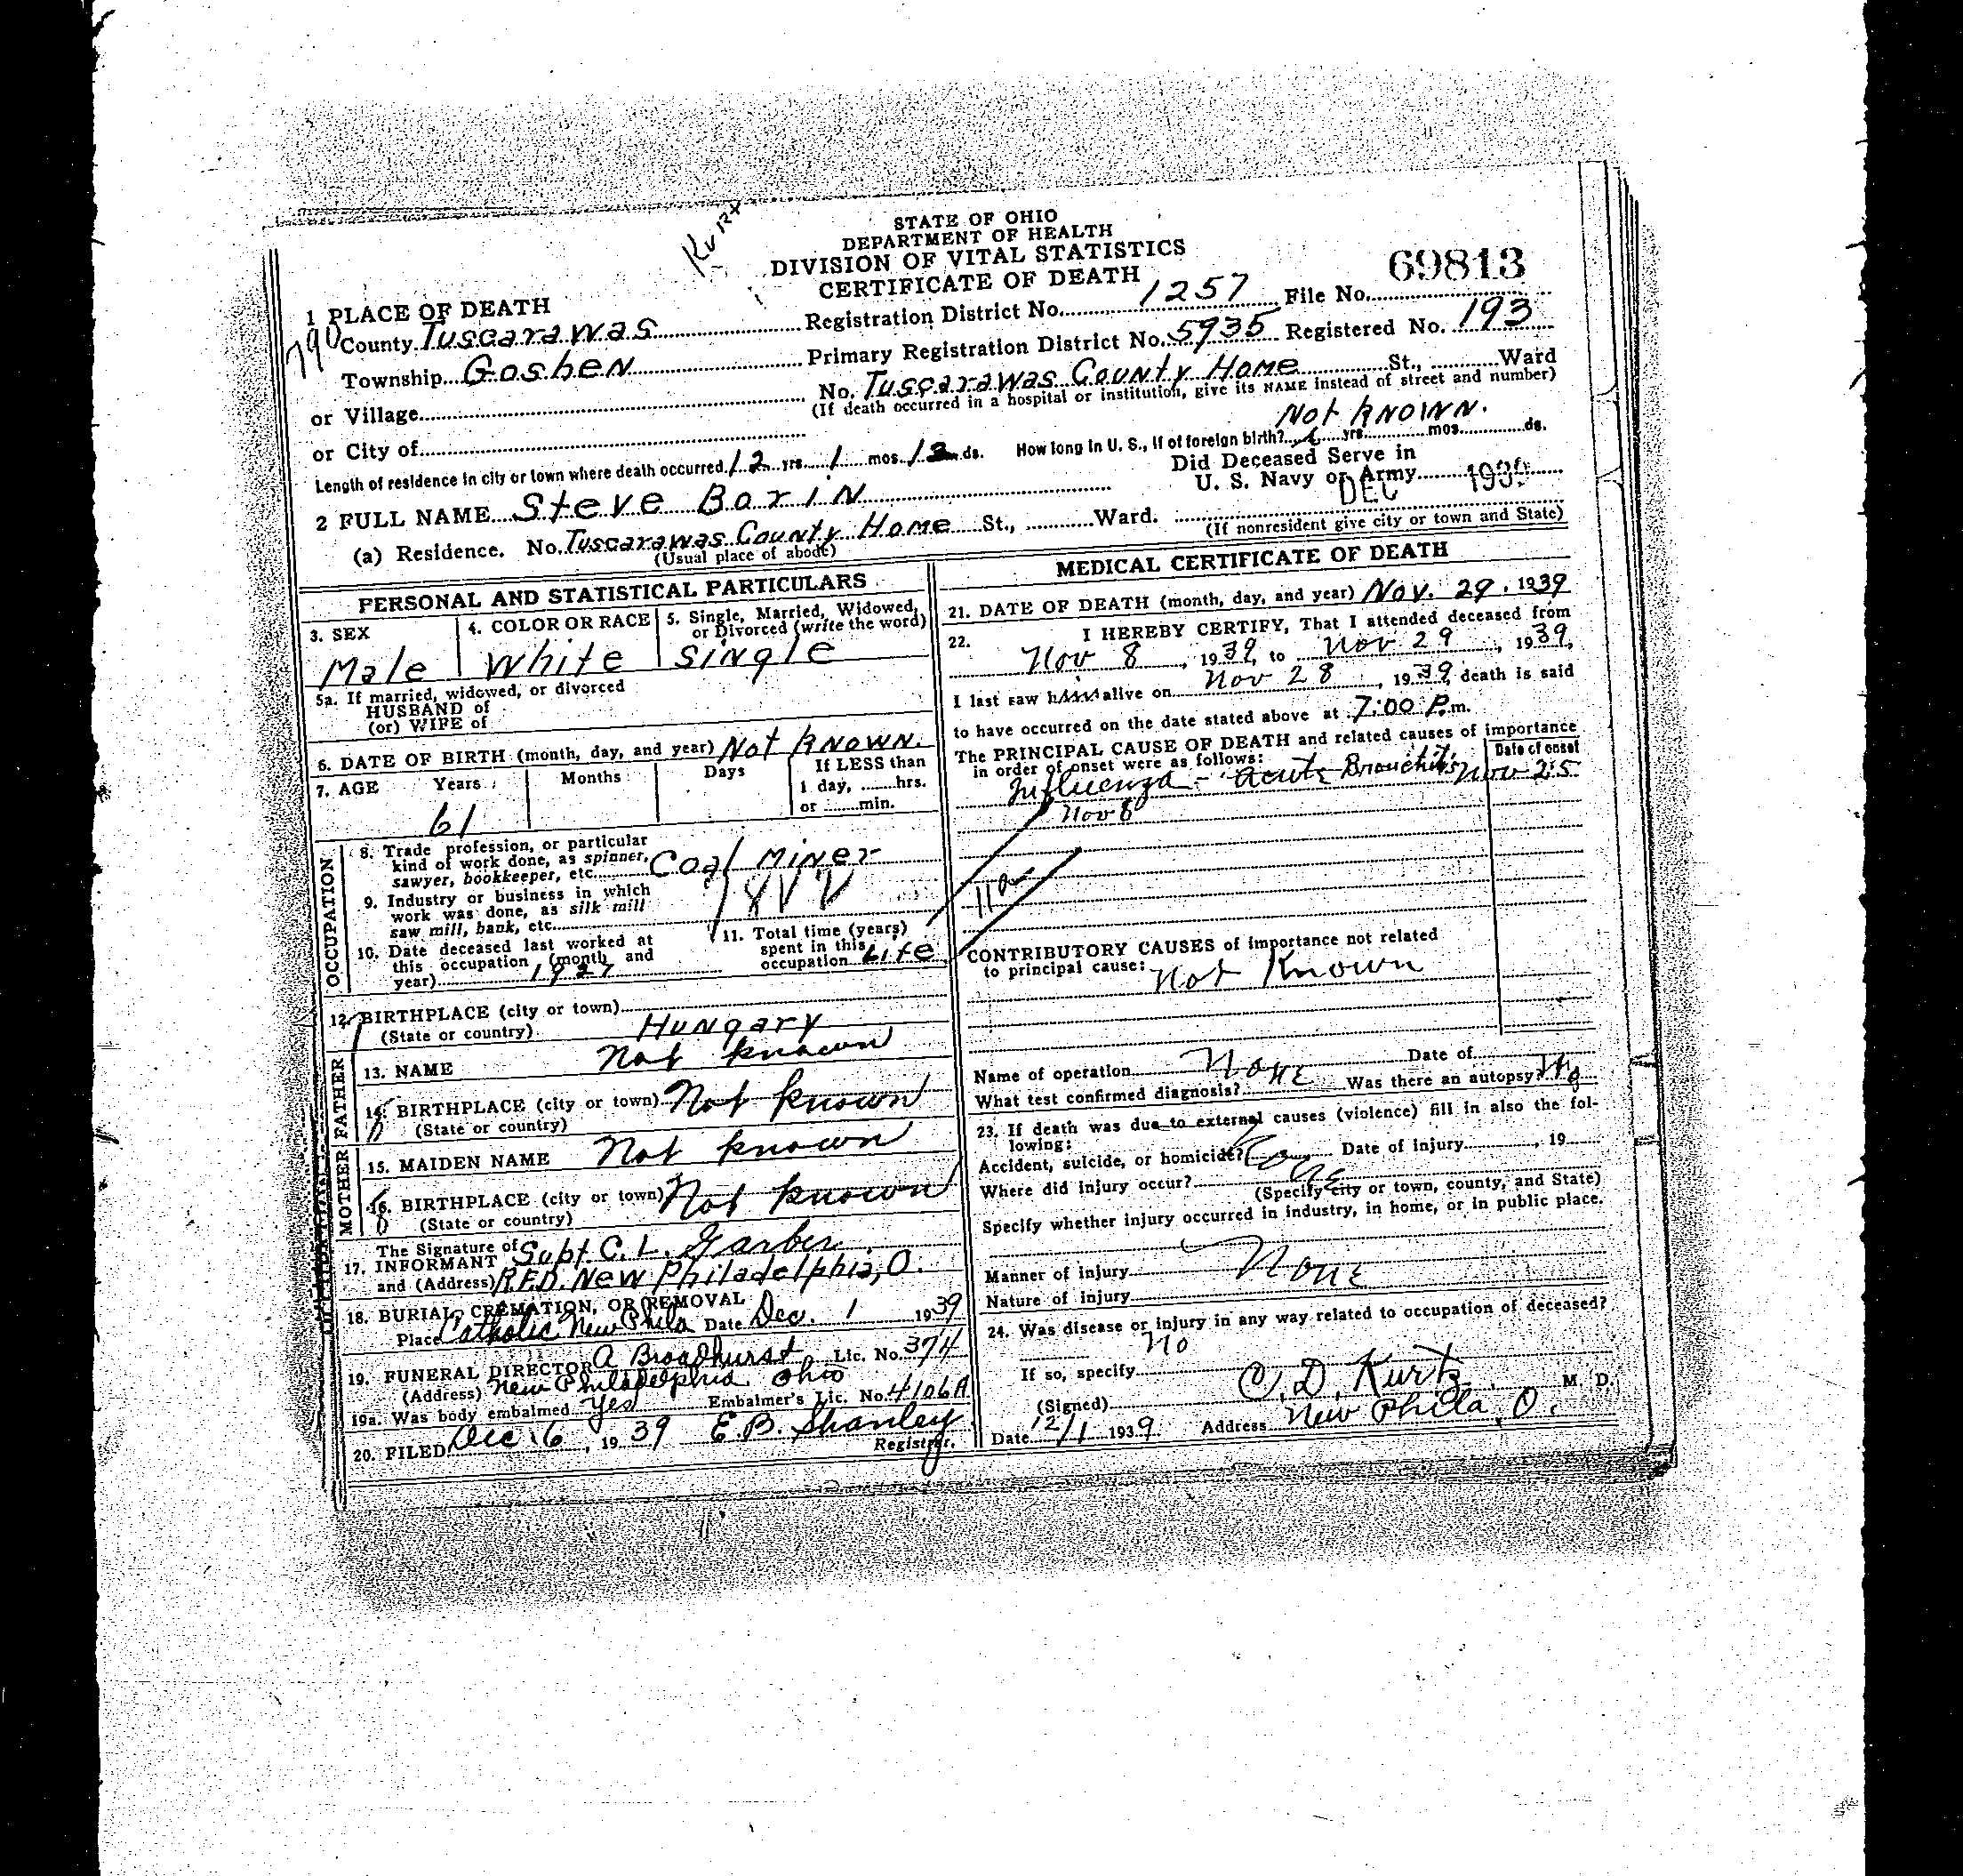 Kurx
STATE OF OHIO
DEPARTMENT OF HEALTH
DIVISION OF VITAL STATISTICS
CERTIFICATE OF DEATH
69813
1 PLACE OF DEATH
790
County Tuscarawas
Registration District No. 1257 File No.
Township Goshen
Primary Registration District No. 5935 Registered No. 193
or Village
No. Tuscarawas County Home St., Ward
(If death occurred in a hospital or institution, give its NAME instead of street and number)
or City of
Not KNOWN.
Length of residence in city or town where death occurred 12 yrs. 1 mos. 13 ds. How long in U. S., if of foreign birth? yrs. mos. ds.
2 FULL NAME Steve Boxin
Did Deceased Serve in
U. S. Navy or Army
DEC 1939
(a) Residence. No. Tuscarawas County Home St., Ward.
(Usual place of abode)
(If nonresident give city or town and State)
PERSONAL AND STATISTICAL PARTICULARS
3. SEX
4. COLOR OR RACE
5. Single, Married, Widowed,
or Divorced (write the word)
Male White Single
5a. If married, widowed, or divorced
HUSBAND of
(or) WIFE of
6. DATE OF BIRTH (month, day, and year) Not KNOWN.
7. AGE Years Months Days If LESS than
1 day, hrs.
or min.
61
OCCUPATION
8. Trade profession, or particular
kind of work done, as spinner,
sawyer, bookkeeper, etc. Coal Miner
9. Industry or business in which
work was done, as silk mill
saw mill, bank, etc.
10. Date deceased last worked at
this occupation (month and
year) 1927
11. Total time (years)
spent in this
occupation Life
12. BIRTHPLACE (city or town)
(State or country) Hungary
FATHER
13. NAME Not known
14. BIRTHPLACE (city or town) Not known
(State or country)
MOTHER
15. MAIDEN NAME Not known
16. BIRTHPLACE (city or town) Not known
(State or country)
The Signature of
17. INFORMANT Supt. C. L. Garber
and (Address) R.F.D. New Philadelphia, O.
18. BURIAL, CREMATION, OR REMOVAL
Place Catholic New Phila Date Dec. 1 1939
19. FUNERAL DIRECTOR A Broadhurst Lic. No. 374
(Address) New Philadelphia Ohio
19a. Was body embalmed Yes Embalmer's Lic. No. 4106A
20. FILED Dec 6, 1939 E.B. Shanley
Registrar.
MEDICAL CERTIFICATE OF DEATH
21. DATE OF DEATH (month, day, and year) Nov. 29, 1939
22. I HEREBY CERTIFY, That I attended deceased from
Nov 8, 1939, to Nov 29, 1939,
I last saw him alive on Nov 28, 1939, death is said
to have occurred on the date stated above at 7:00 P.m.
The PRINCIPAL CAUSE OF DEATH and related causes of importance
in order of onset were as follows:
Date of onset
Influenza - Acute Bronchitis Nov 25
Nov 8
11a
CONTRIBUTORY CAUSES of importance not related
to principal cause:
Not Known
Name of operation None Date of
What test confirmed diagnosis? Was there an autopsy? No
23. If death was due to external causes (violence) fill in also the fol-
lowing:
Accident, suicide, or homicide? Date of injury, 19
Where did injury occur?
(Specify city or town, county, and State)
Specify whether injury occurred in industry, in home, or in public place.
Manner of injury None
Nature of injury
24. Was disease or injury in any way related to occupation of deceased?
No
If so, specify
(Signed) C. D. Kurtz, M. D.
Date 12/1 1939 Address New Phila, O.